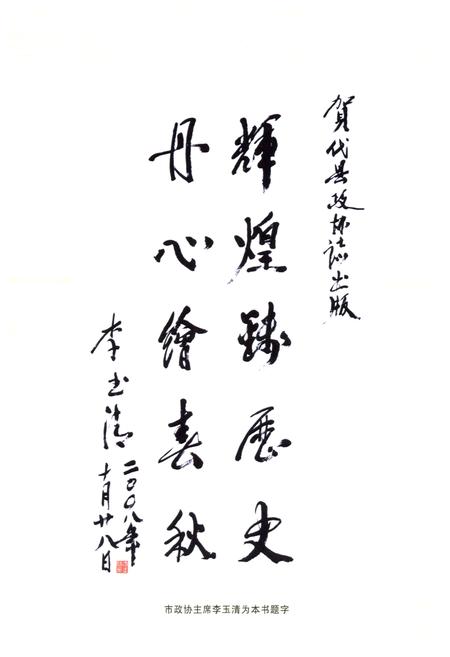 賀代县政协志出版
輝煌鑄歷史
丹心繪春秋
李玉清
二〇〇八年
十月廿八日
市政协主席李玉清为本书题字